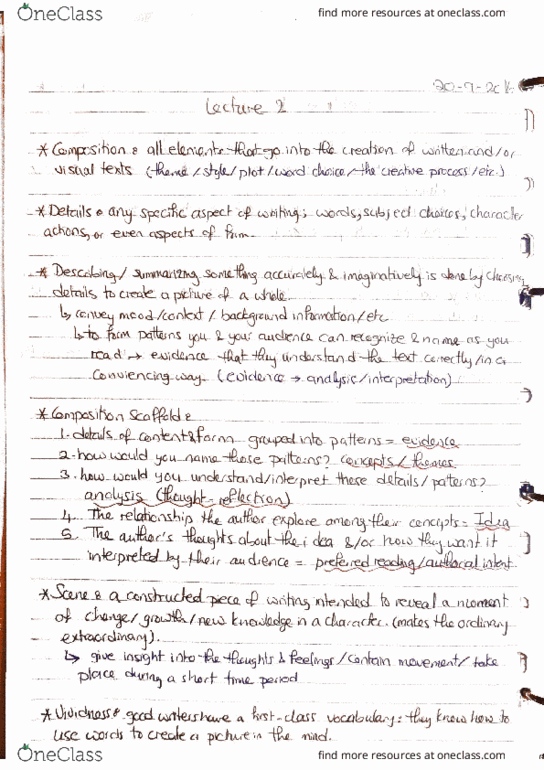 OneClass
find more resources at oneclass.com
20-9-20
Lecture 2
* Composition : all elements that go into the creation of written and/or
visual texts (theme/style/plot/word choice/the creative process/etc.)
* Details : any specific aspect of writing; words, subject choices, character
actions, or even aspects of form.
* Describing/ summarizing something accurately & imaginatively is done by choosing
details to create a picture of a whole.
↳ convey mood/context/ background information/etc
↳ to form patterns you & your audience can recognize & name as you
read → evidence that they understand the text correctly/in a
conviencing way (evidence → analysis/interpretation)
* Composition Scaffold :
1. details of content & form grouped into patterns = evidence
2. how would you name those patterns? concepts/themes
3. how would you understand/interpret these details/patterns?
analysis (thought-reflection)
4. The relationship the author explore among their concepts = Idea
5. The author's thoughts about the idea &/or how they want it
interpreted by their audience = preferred reading/authorial intent
* Scene : a constructed piece of writing intended to reveal a moment
of change/growth/new knowledge in a character. (makes the ordinary
extraordinary).
↳ give insight into the thoughts & feelings/contain movement/take
place during a short time period
* Vividness : good writers have a first-class vocabulary: they know how to
use words to create a picture in the mind.
OneClass
find more resources at oneclass.com